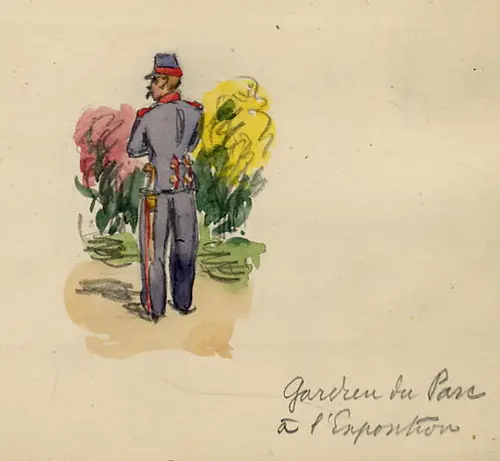 Gardien du Parc
à l'Exposition